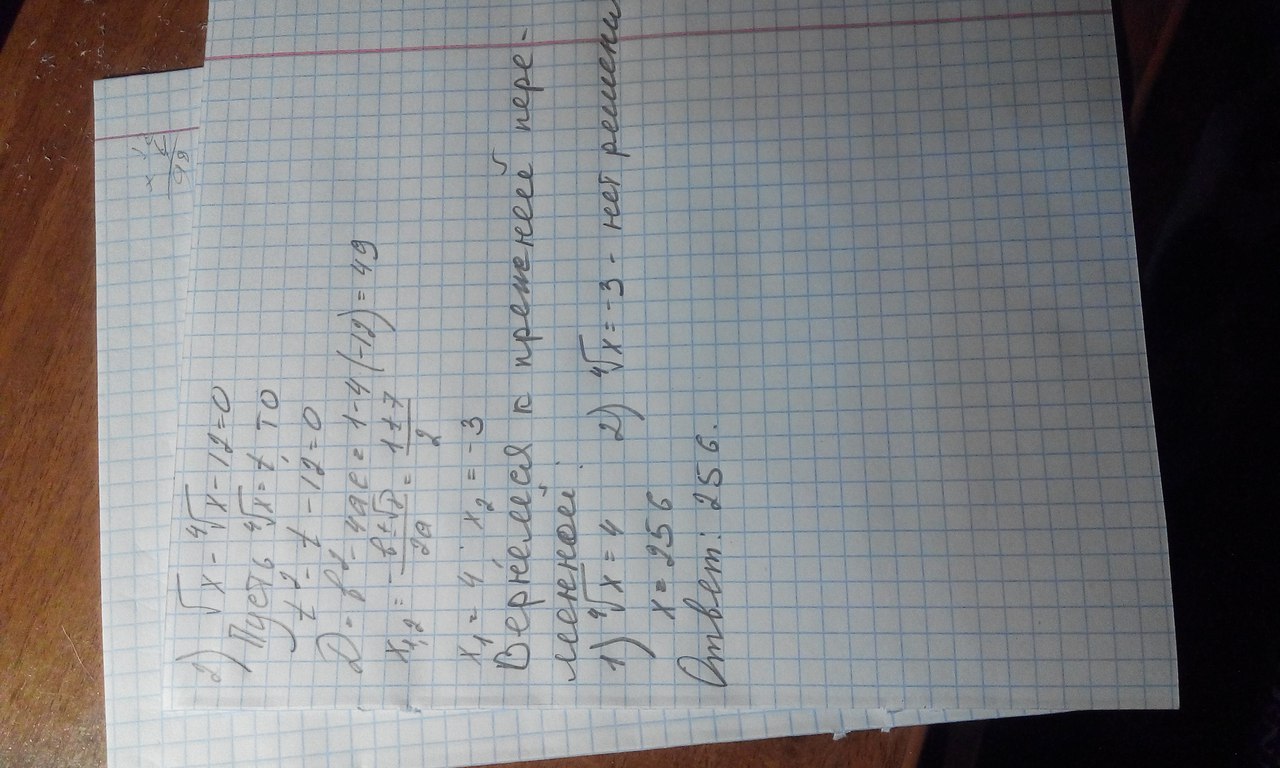 2) √x - ⁴√x - 12 = 0
Пусть ⁴√x = t, то
t² - t - 12 = 0
D = b² - 4ac = 1 - 4(-12) = 49
x₁,₂ = -b ± √D / 2a = 1 ± 7 / 2
x₁ = 4 x₂ = -3
Вернёмся к прежней пере-
менной:
1) ⁴√x = 4 2) ⁴√x = -3 - нет решени
x = 256
Ответ: 256.